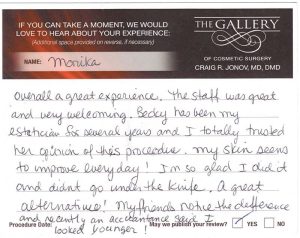 IF YOU CAN TAKE A MOMENT, WE WOULD
LOVE TO HEAR ABOUT YOUR EXPERIENCE:
(Additional space provided on reverse, if necessary)
NAME: Monika
THE GALLERY
OF COSMETIC SURGERY
CRAIG R. JONOV, MD, DMD
Overall a great experience. The staff was great
and very welcoming. Becky has been my
estetician for several years and I totally trusted
her opinion of this procedure. My skin seems
to improve everyday! I'm so glad I did it
and didnt go under the knife. A great
alternative! My friends notice the difference
and recently an accountance said I
looked younger!
Procedure Date:
May we publish your review? ✓ YES NO